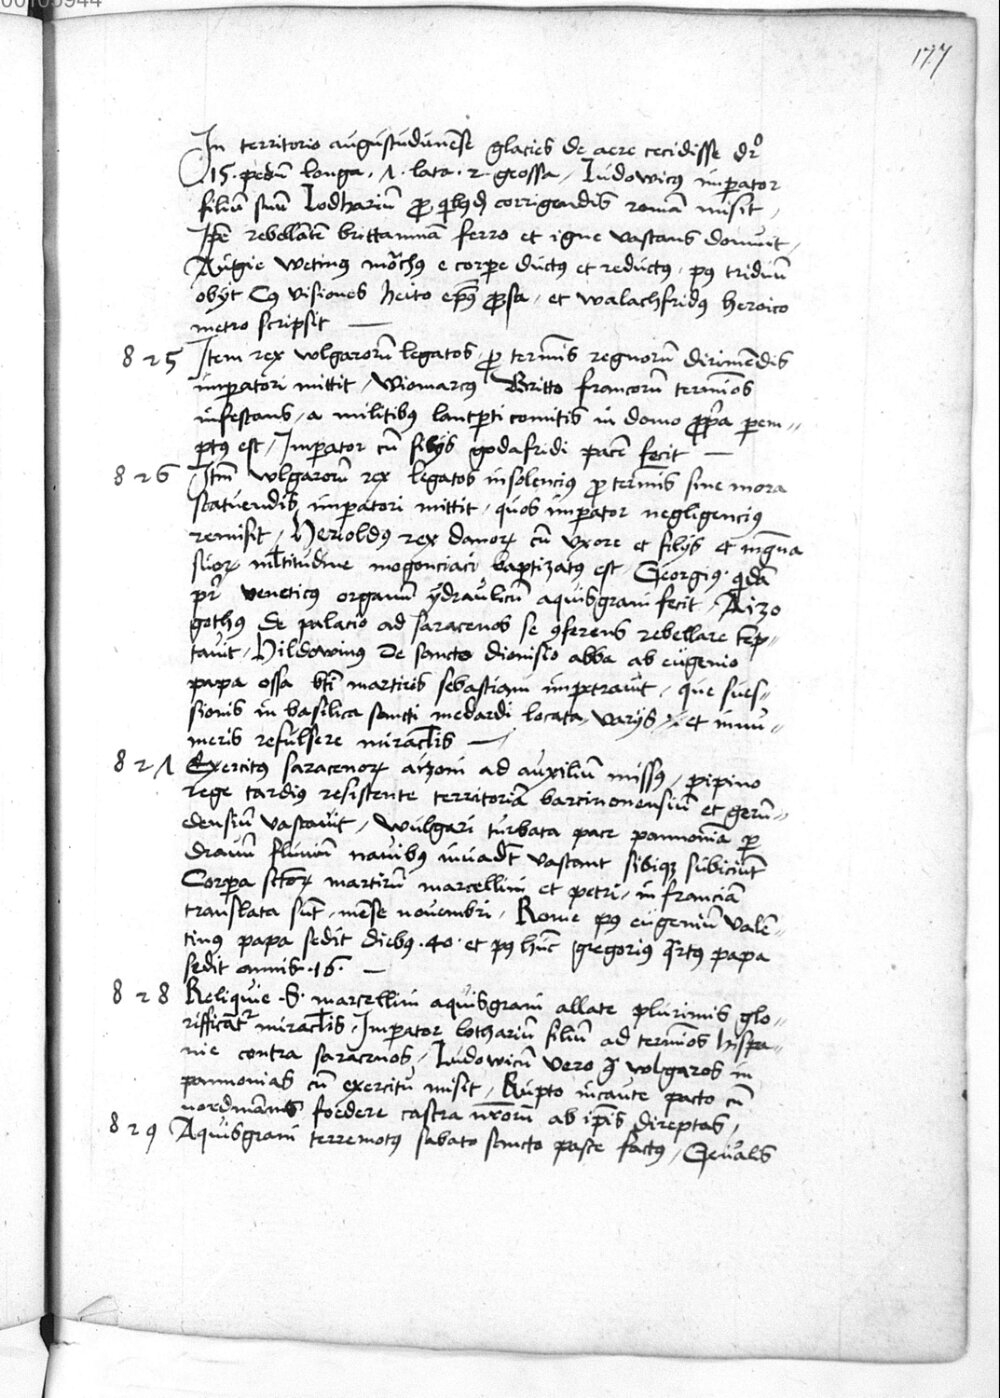 00105944
177
In territorio augustudunēse glacies de aere cecidisse dr̄
15 pedū longa . 1 . lata . 2 . grossa / Ludowicꝰ imperator
filiū suū Lodhariū ꝓ qibꝰdā corrigendis romā misit /
Ip̄e rebellātē brittanniā ferro et igne vastans domuit /
Augie Wetinꝰ mōchꝰ e corpe ductꝰ et reductꝰ / pꝰ triduū
obijt Cꝰ visiones heito ep̄s ꝓsa / et walachfridꝰ heroico
metro scripsit —
825 Item rex wlgarorū legatos ꝓ termīs regnorū dirimēdis
imperatori mittit / Wiomarcꝰ Britto francorū termīos
infestans / a militibꝰ lantꝑti comitis in domo ꝓpͥa perem„
ptꝰ est / Imperator cū filijs godafridi pacē fecit —
826 Itē wlgarorū rex legatos insolenciꝰ ꝓ termīs sine mora
statuendis imperatori mittit / quos imperator negligenciꝰ
remisit / Herioldꝰ rex danoꝝ cū vxore et filijs et mḡna
suoꝝ ml̄titudine mogonciaci baptizatꝰ est / Georgiꝰ qidā
pr̄ veneticꝰ organū ydraulicū aquisgrani fecit / Aizo
gothꝰ de palacio ad saracenos se ꝯferens rebellare tēp„
tauit / Hildowinꝰ de sancto dionisio abba ab eugenio
papa ossa bt̄i martiris sebastiani impetrauit / que sues„
sionis in basilica sancti medardi locata / varijs et innu„
meris refulsere miracl̄is —
827 Exercitꝰ saracenoꝝ aizoni ad auxiliū missꝰ / pipino
rege tardiꝰ resistente territoriā barcinonensiū et gerū„
densiū vastauit / Wulgari turbata pace pannonīa ꝑ
drauū fluuiū nauibꝰ inuadūt vastant sibiqꝫ subiciūt
Corpa sctōꝝ martirū marcellini et petri / in franciā
translata sūt / mēse nouembri / Rome pꝰ eugeniū valē„
tinꝰ papa sedit diebꝰ . 40 . et pꝰ hūc gregoriꝰ qrtꝰ papa
sedit annis . 16 . —
828 Reliquie . S . marcellini aquisgrani allate plurimis glo„
rificātr miracl̄is / Imperator lothariū filiū ad termīos hispa„
nie contra saracenos / Ludowicū vero ꝯ̄ wlgaros in
pannonias cū exercitu misit / Rupto incaute pacto cū
nordmānis foedere castra nr̄orū ab ip̄is direptas /
829 Aquisgrani terremotꝰ sabato sancto pasce factꝰ / Generalis